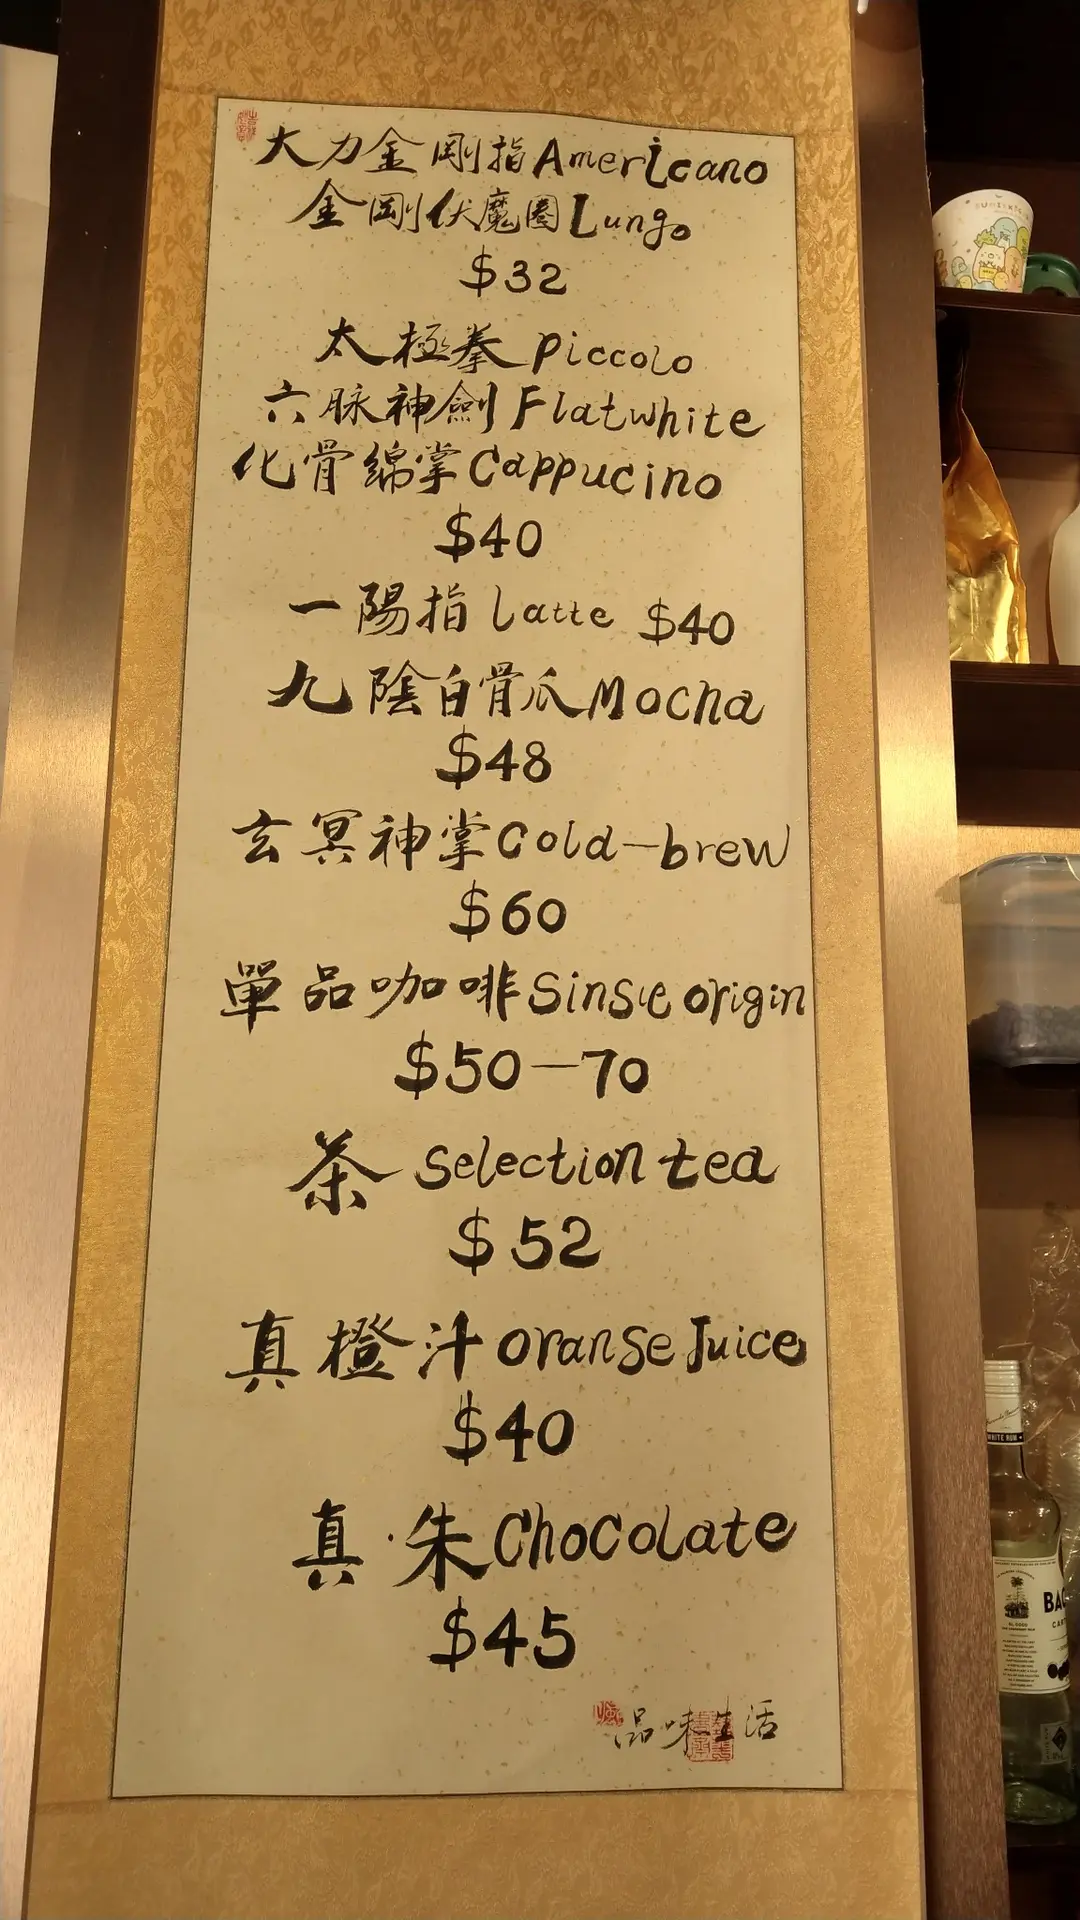 大力金剛指Americano
金剛伏魔圈Lungo
$32
太極拳 piccolo
六脉神劍 Flatwhite
化骨綿掌Cappucino
$40
一陽指 Latte $40
九陰白骨爪Mocha
$48
玄冥神掌Cold-brew
$60
單品咖啡Sinsle origin
$50-70
茶 selection tea
$52
真橙汁 oranse Juice
$40
真·朱Chocolate
$45
品味生活
WHITE RUM